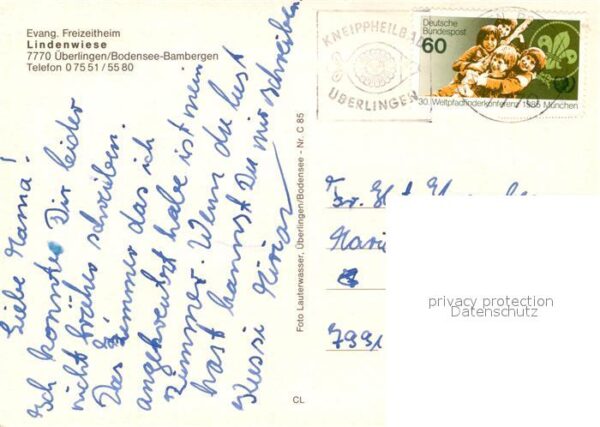 Evang. Freizeitheim
Lindenwiese
7770 Überlingen/Bodensee-Bambergen
Telefon 0 75 51 / 55 80
Liebe Mama!
Ich konnte Dir leider
nicht früher schreiben.
Das Zimmer das ich
angekreutzt habe ist mein
Zimmer. Wenn du lust
hast kannst Du mir schreiben
Kussi Miriam
Foto Lauterwasser, Überlingen/Bodensee - Nr. C 85
CL
KNEIPPHEILBAD
ÜBERLINGEN
Deutsche
Bundespost
60
30. Weltpfadfinderkonferenz 1985 München
Fr.
Mari
7991
privacy protection
Datenschutz